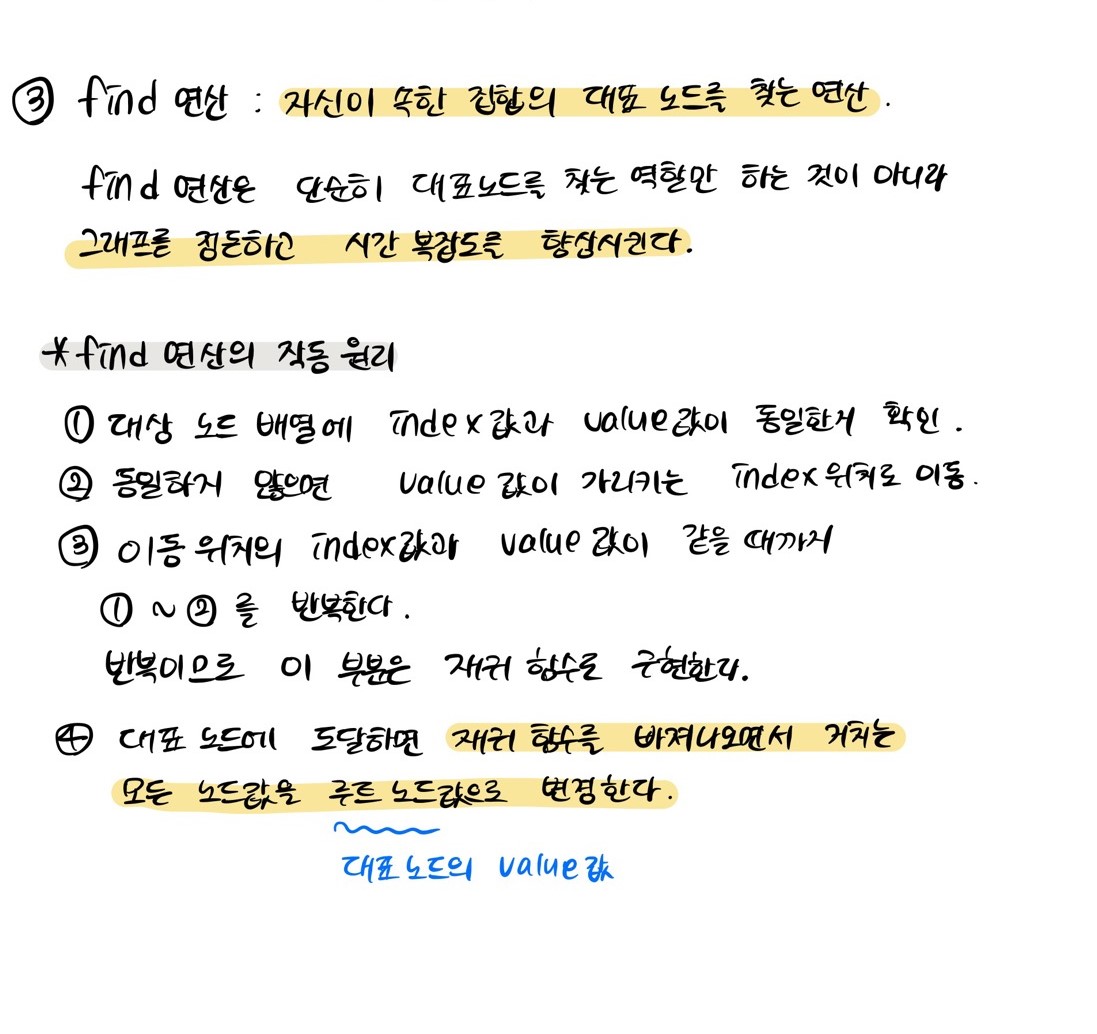 ③ find 연산 : 자신이 속한 집합의 대표 노드를 찾는 연산.
find 연산은 단순히 대표노드를 찾는 역할만 하는 것이 아니라
그래프를 정돈하고 시간 복잡도를 향상시킨다.
*find 연산의 작동 원리
① 대상 노드 배열에 index값과 value값이 동일한게 확인.
② 동일하지 않으면 value 값이 가리키는 index위치로 이동.
③ 이동 위치의 index값과 value 값이 같을 때까지
① ~ ② 를 반복한다.
반복이므로 이 부분은 재귀 함수로 구현한다.
④ 대표 노드에 도달하면 재귀 함수를 빠져나오면서 거치는
모든 노드값을 루트 노드값으로 변경한다.
대표노드의 value 값